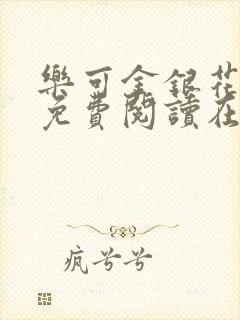 樂可金銀花
免費閱讀在
疯兮兮